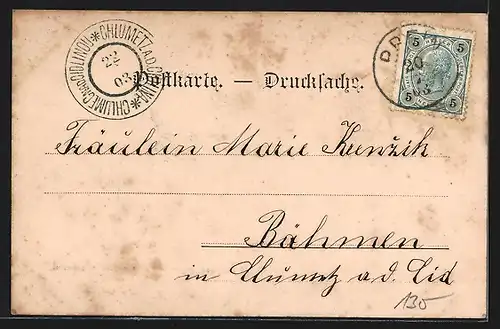 CHLUMETZ A.D. CIDLINA * CHLUMEC NAD CIDLINOU *
22
03
5 5
5 5
PR
20
03
Postkarte. — Drucksache.
Fräulein Marie Kenžik
Böhmen
in Chlumetz a. d. Cid
130